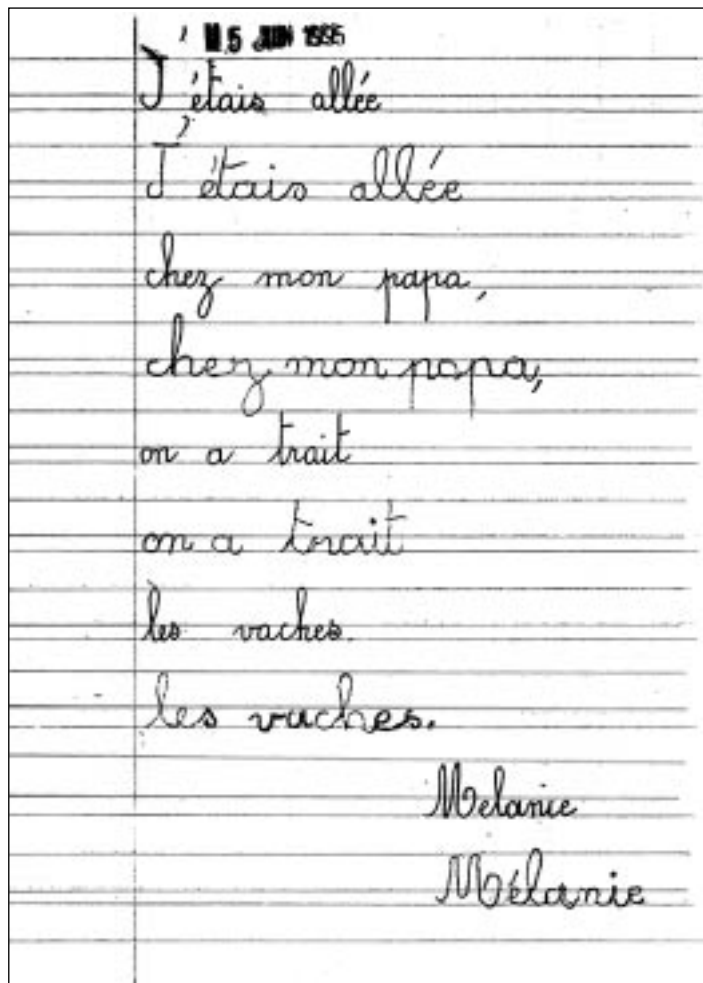 5 JUN 1995
J'étais allée
J'étais allée
chez mon papa,
chez mon papa,
on a trait
on a trait
les vaches.
les vaches.
Melanie
Mélanie